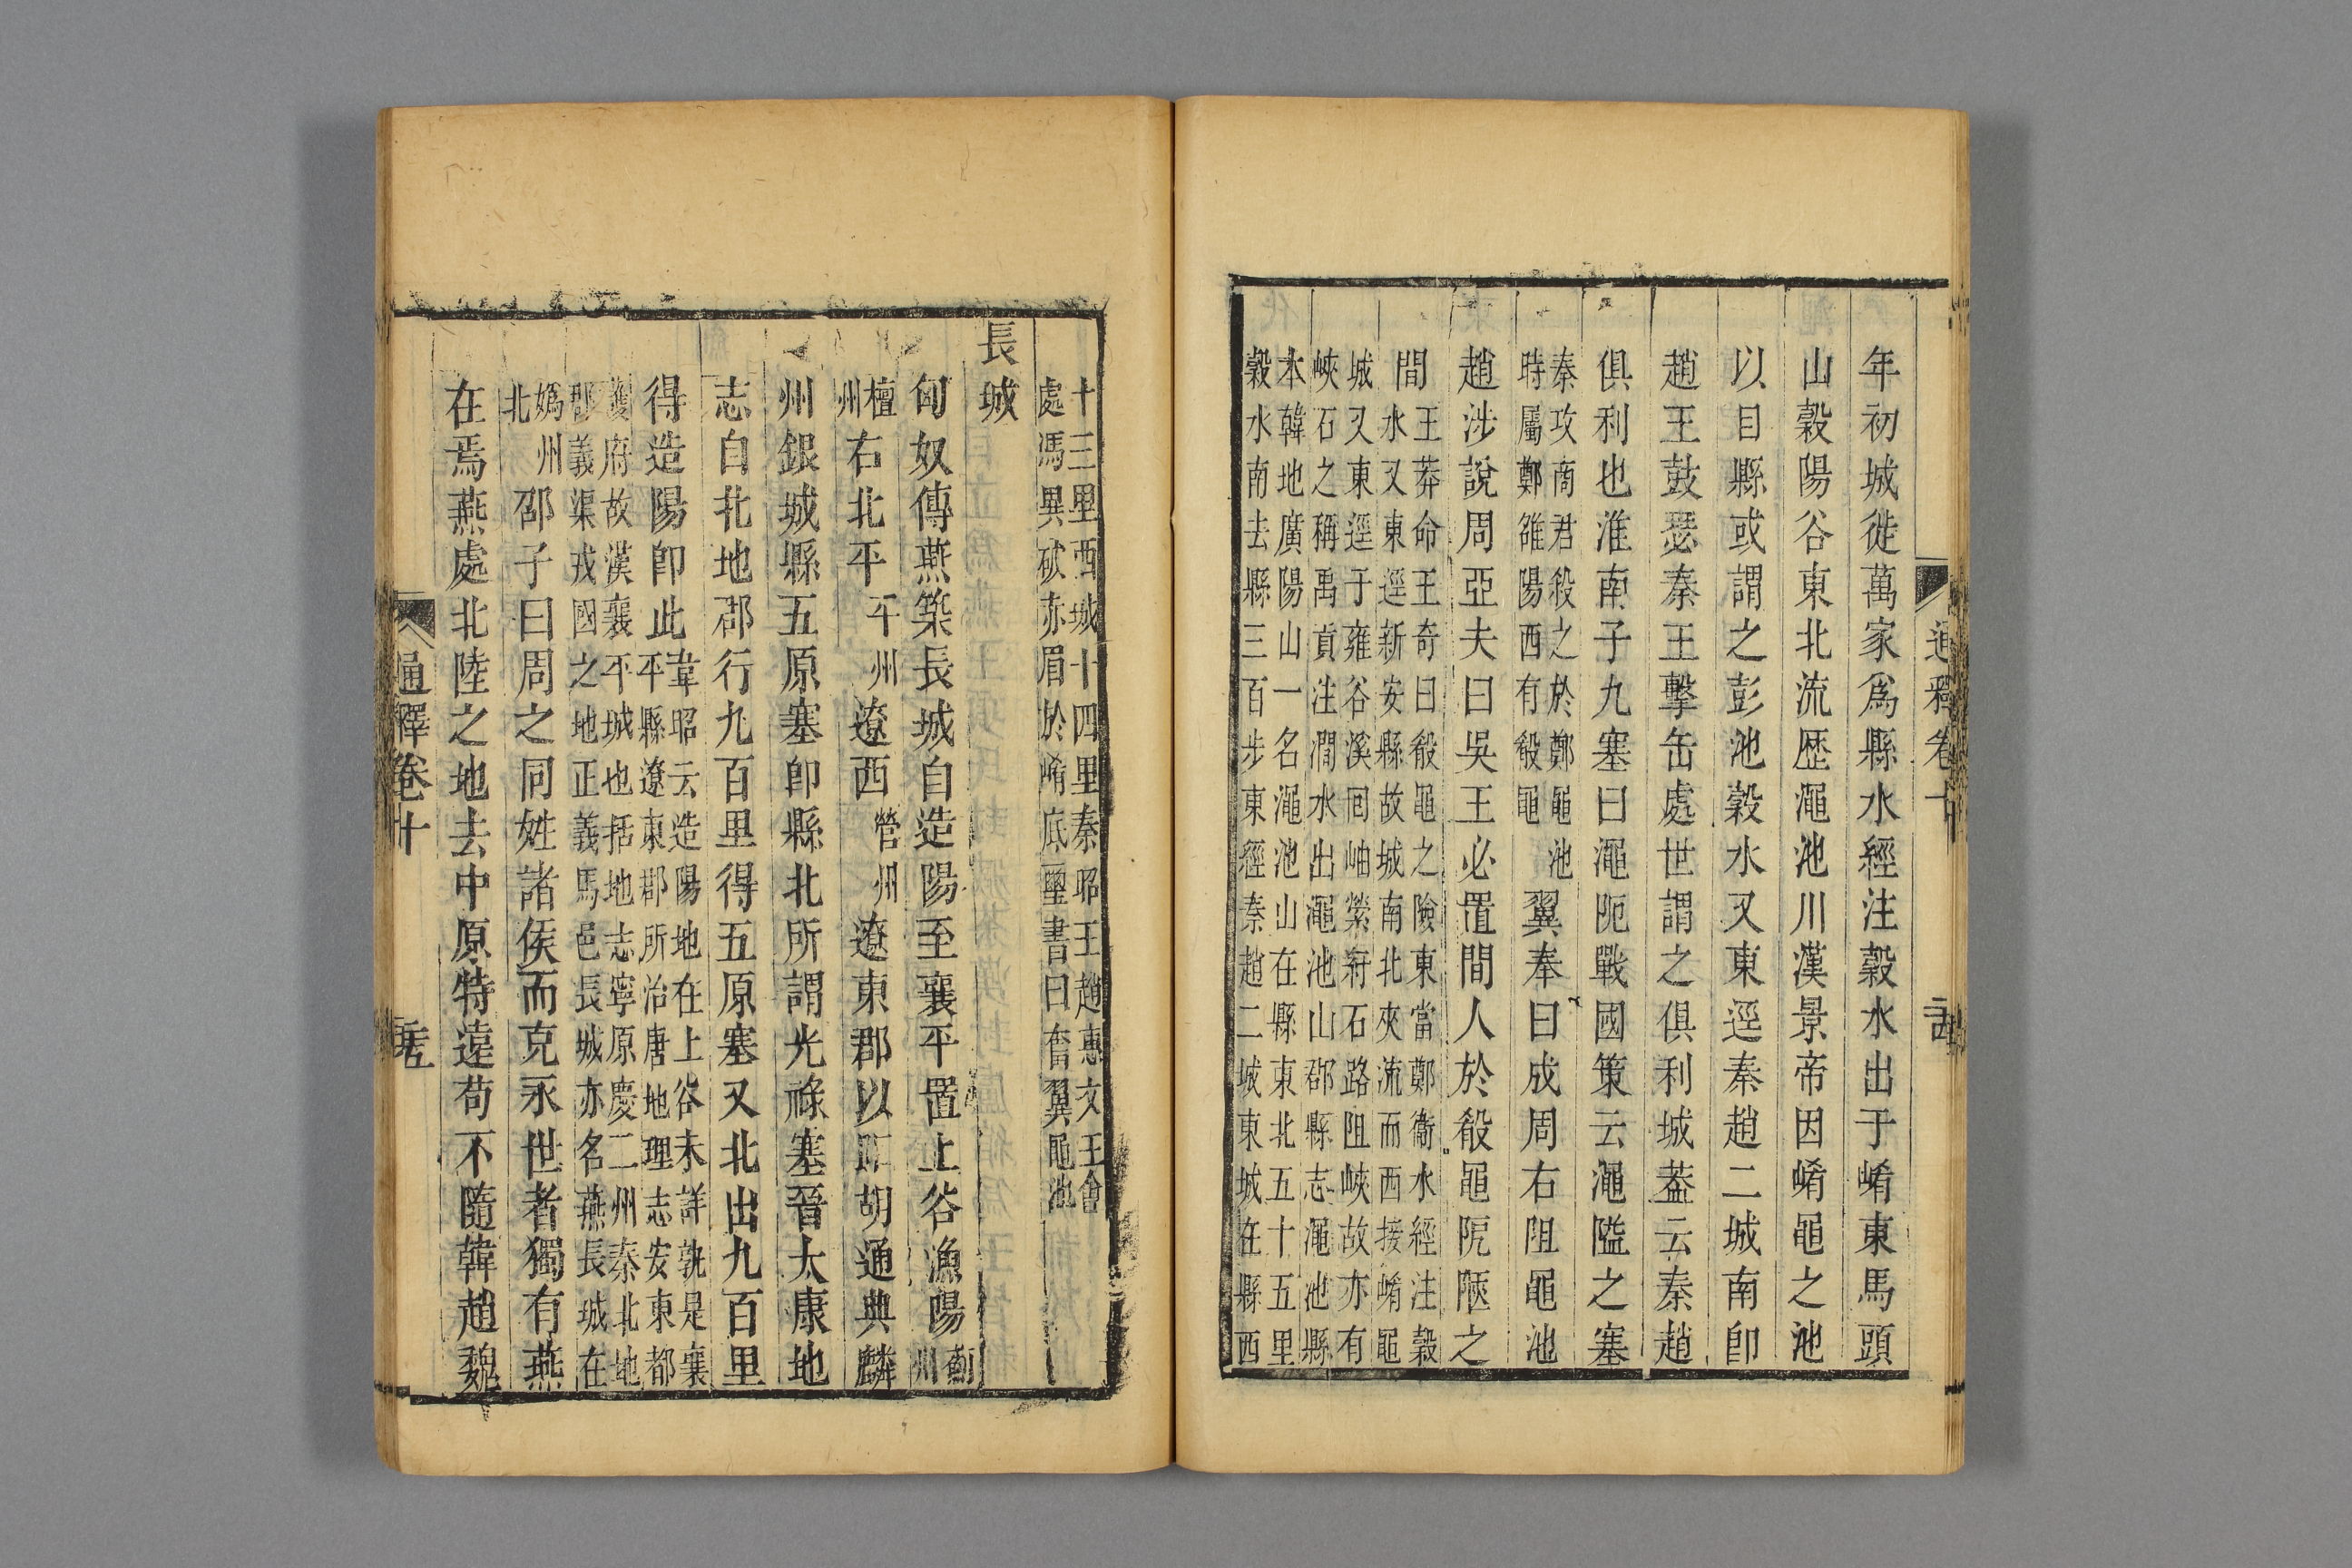 通釋卷十
年初城徙萬家爲縣水經注穀水出于崤東馬頭
山穀陽谷東北流歷澠池川漢景帝因崤黽之池
以目縣或謂之彭池穀水又東逕秦趙二城南卽
趙王鼓瑟秦王擊缶處世謂之俱利城葢云秦趙
俱利也淮南子九塞曰澠阨戰國策云澠隘之塞
秦攻商君殺之於鄭黽池
時屬鄭雒陽西有殽黽
翼奉曰成周右阻黽池
趙涉說周亞夫曰吳王必置間人於殽黽阨陿之
間
王莽命王奇曰殽黽之險東當鄭衞水經注穀
水又東逕新安縣故城南北夾流而西接崤黽
城又東逕于雍谷溪回岫縈紆石路阻峽故亦有
峽石之稱禹貢注澗水出澠池山郡縣志澠池縣
本韓地廣陽山一名澠池山在縣東北五十五里
穀水南去縣三百步東經秦趙二城東城在縣西
十三里西城十四里秦昭王趙惠文王會
處馮異破赤眉於崤底璽書曰奮翼黽池
長城
匈奴傳燕築長城自造陽至襄平置上谷漁陽薊州
檀州右北平平州遼西營州遼東郡以距胡通典麟
州銀城縣五原塞卽縣北所謂光祿塞晉太康地
志自北地郡行九百里得五原塞又北出九百里
得造陽卽此
韋昭云造陽地在上谷未詳孰是襄
平縣遼東郡所治唐地理志安東都
護府故漢襄平城也括地志寧原慶二州秦北地
郡義渠戎國之地正義馬邑長城亦名燕長城在
嬀州北
邵子曰周之同姓諸侯而克永世者獨有燕
在焉燕處北陸之地去中原特遠苟不隨韓趙魏
通釋卷十